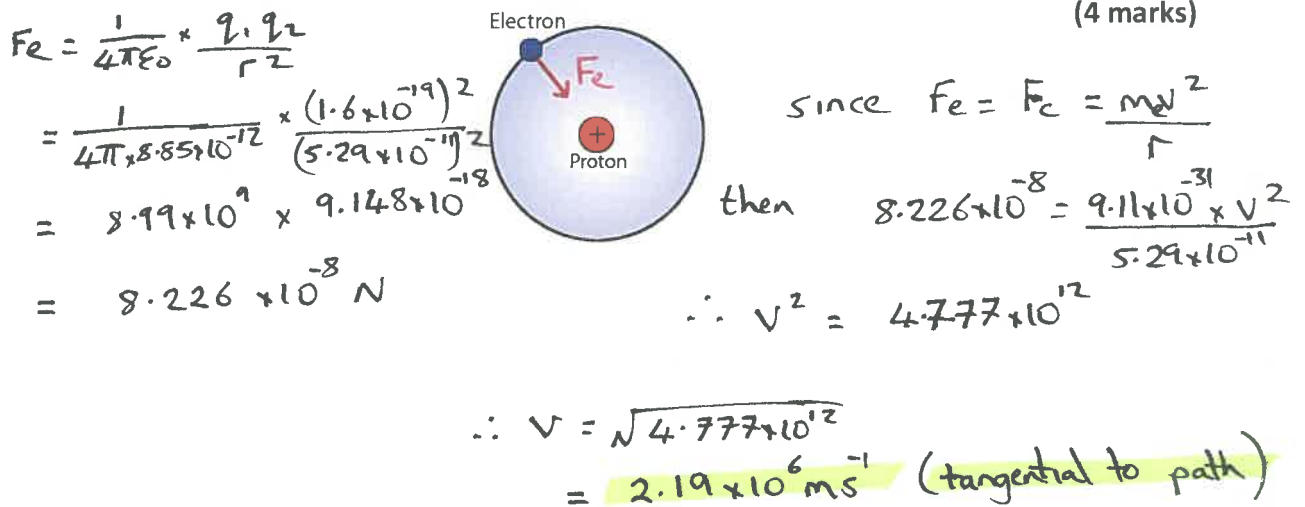 (4 marks)
Fe = 1/4πε₀ × q₁q₂/r²
= 1/4π×8.85×10⁻¹² × (1.6×10⁻¹⁹)²/(5.29×10⁻¹¹)²
= 8.99×10⁹ × 9.148×10⁻¹⁸
= 8.226 ×10⁻⁸ N
Electron
Fe
+
Proton
since Fe = Fc = mev²/r
then 8.226×10⁻⁸ = 9.11×10⁻³¹ × v²/5.29×10⁻¹¹
∴ v² = 4.777×10¹²
∴ v = √4.777×10¹²
= 2.19×10⁶ ms⁻¹ (tangential to path)